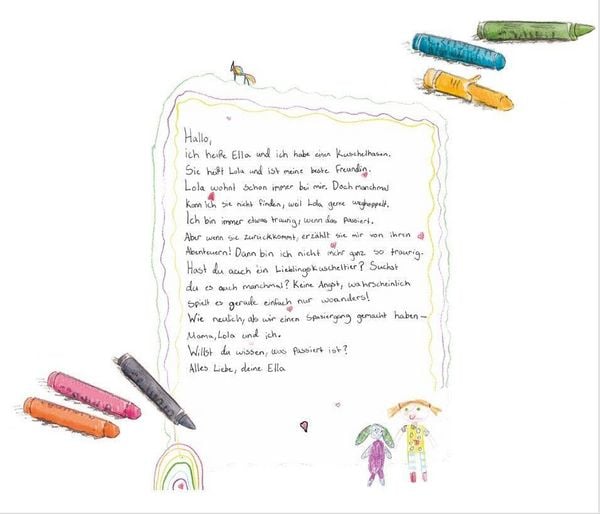 Hallo,
ich heiße Ella und ich habe einen Kuschelhasen.
Sie heißt Lola und ist meine beste Freundin.
Lola wohnt schon immer bei mir. Doch manchmal
kann ich sie nicht finden, weil Lola gerne weghoppelt.
Ich bin immer etwas traurig, wenn das passiert.
Aber wenn sie zurückkommt, erzählt sie mir von ihren
Abenteuern! Dann bin ich nicht mehr ganz so traurig.
Hast du auch ein Lieblingskuscheltier? Suchst
du es auch manchmal? Keine Angst, wahrscheinlich
spielt es gerade einfach nur woanders!
Wie neulich, als wir einen Spaziergang gemacht haben –
Mama, Lola und ich.
Willst du wissen, was passiert ist?
Alles Liebe, deine Ella